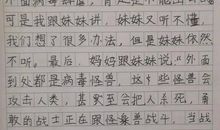 可是我跟妹妹讲，妹妹又听不懂，
我们想了很多办法，但是妹妹依然
不听。最后，妈妈跟妹妹说："外面
到处都是病毒怪兽，这些怪兽会
攻击人类，甚至会把人杀死，勇
敢的战士正在跟怪兽战斗，当战